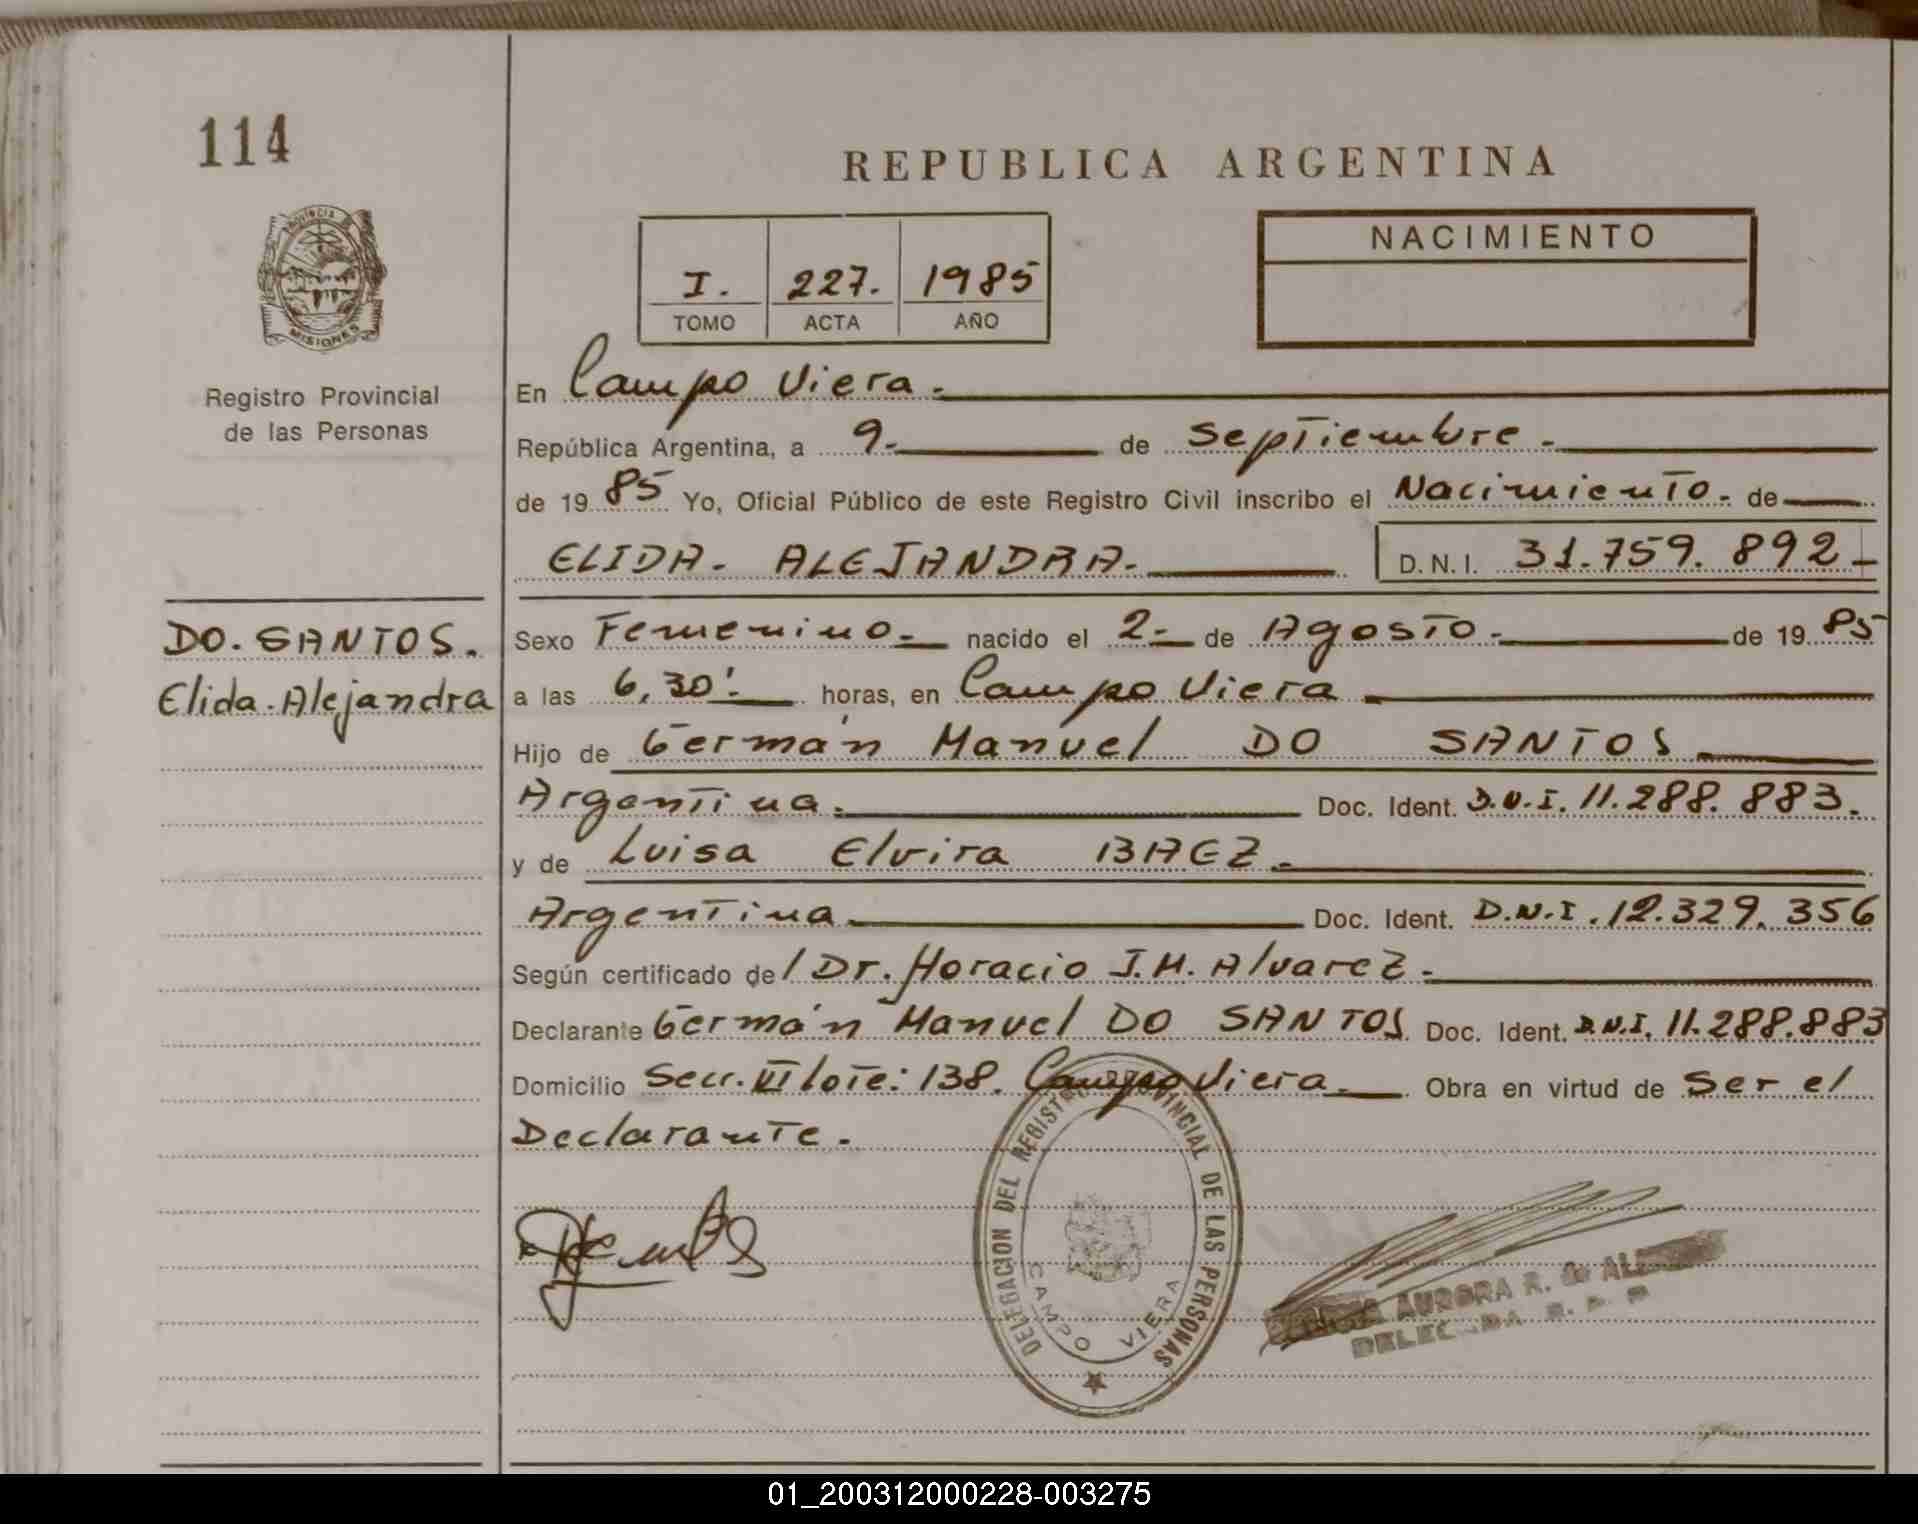 114
REPUBLICA ARGENTINA
PROVINCIA DE MISIONES
Registro Provincial
de las Personas
I. 227. 1985
TOMO ACTA AÑO
NACIMIENTO
En Campo Viera.
República Argentina, a 9. de Septiembre.
de 19 85 Yo, Oficial Público de este Registro Civil inscribo el Nacimiento. de
ELIDA. ALEJANDRA. D.N.I. 31.759.892
DO. SANTOS.
Elida. Alejandra
Sexo Femenino. nacido el 2. de Agosto. de 19 85
a las 6,30'. horas, en Campo Viera
Hijo de Germán Manuel DO SANTOS
Argentina. Doc. Ident. D.N.I. 11.288.883.
y de Luisa Elvira BAEZ.
Argentina. Doc. Ident. D.N.I. 12.329.356
Según certificado de / Dr. Horacio J.M. Alvarez.
Declarante Germán Manuel DO SANTOS Doc. Ident. D.N.I. 11.288.883
Domicilio Secc. VI lote: 138. Campo Viera. Obra en virtud de ser el
Declarante.
DELEGACION DEL REGISTRO PROVINCIAL DE LAS PERSONAS
CAMPO VIERA
AURORA R. de
DELEGADA R. P. P.
01_200312000228-003275